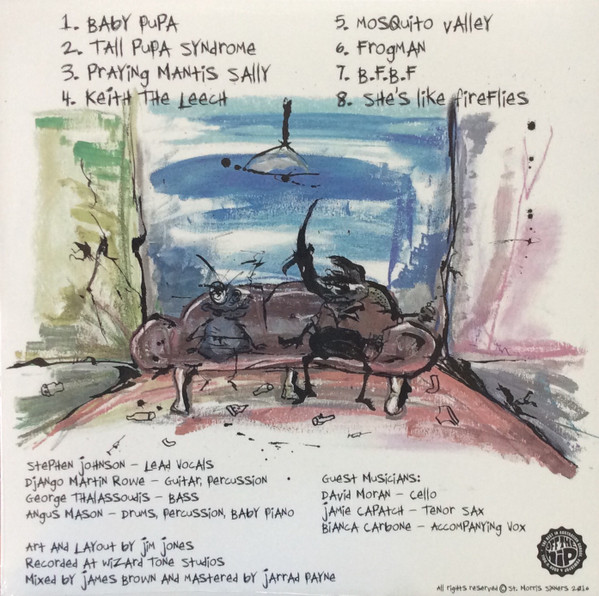 1. Baby Pupa
2. Tall Pupa Syndrome
3. Praying Mantis Sally
4. Keith The Leech
5. Mosquito Valley
6. Frogman
7. B.F.B.F
8. She's Like Fireflies
Stephen Johnson – Lead Vocals
Django Martin Rowe – Guitar, Percussion
George Thalassoudis – Bass
Angus Mason – Drums, Percussion, Baby Piano
Guest Musicians:
David Moran – Cello
Jamie Capatch – Tenor Sax
Bianca Carbone – Accompanying Vox
Art and Layout by Jim Jones
Recorded at Wizard Tone Studios
Mixed by James Brown and Mastered by Jarrad Payne
OFF THE HIP
All rights reserved © St. Morris Sinners 2016